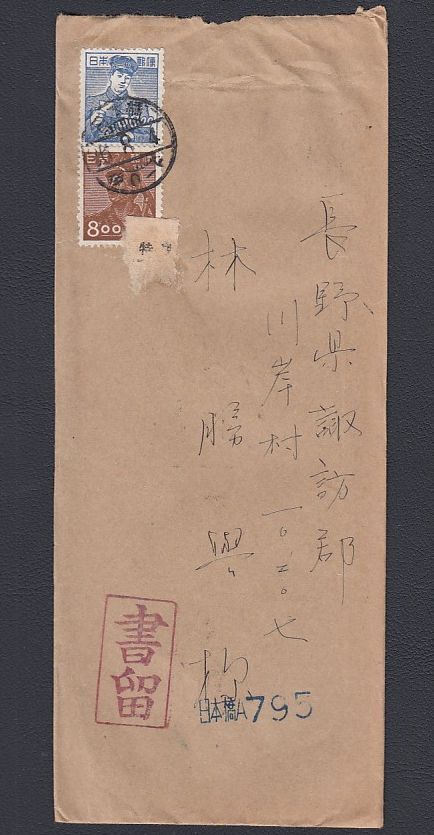 日本郵便
日本
8.00
特
長野県諏訪郡
川岸村一〇二〇七
林 勝 様
書留
日本橋A795